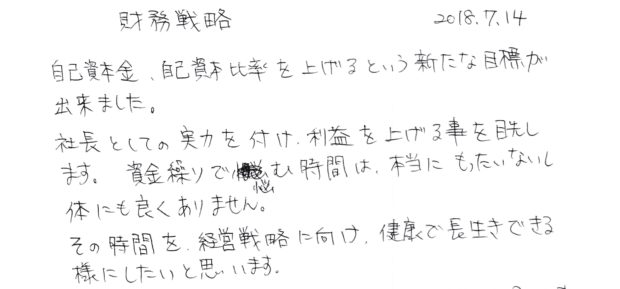 財務戦略 2018.7.14
自己資本金、自己資本比率を上げるという新たな目標が
出来ました。
社長としての実力を付け、利益を上げる事を目先し
ます。資金繰りで悩む時間は、本当にもったいないし
体にも良くありません。
その時間を、経営戦略に向け、健康で長生きできる
様にしたいと思います。